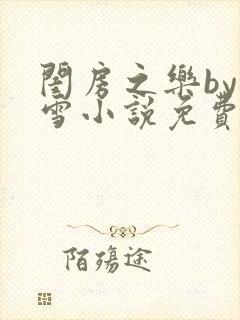 閨房之樂by
雪小說免費
陌殤途